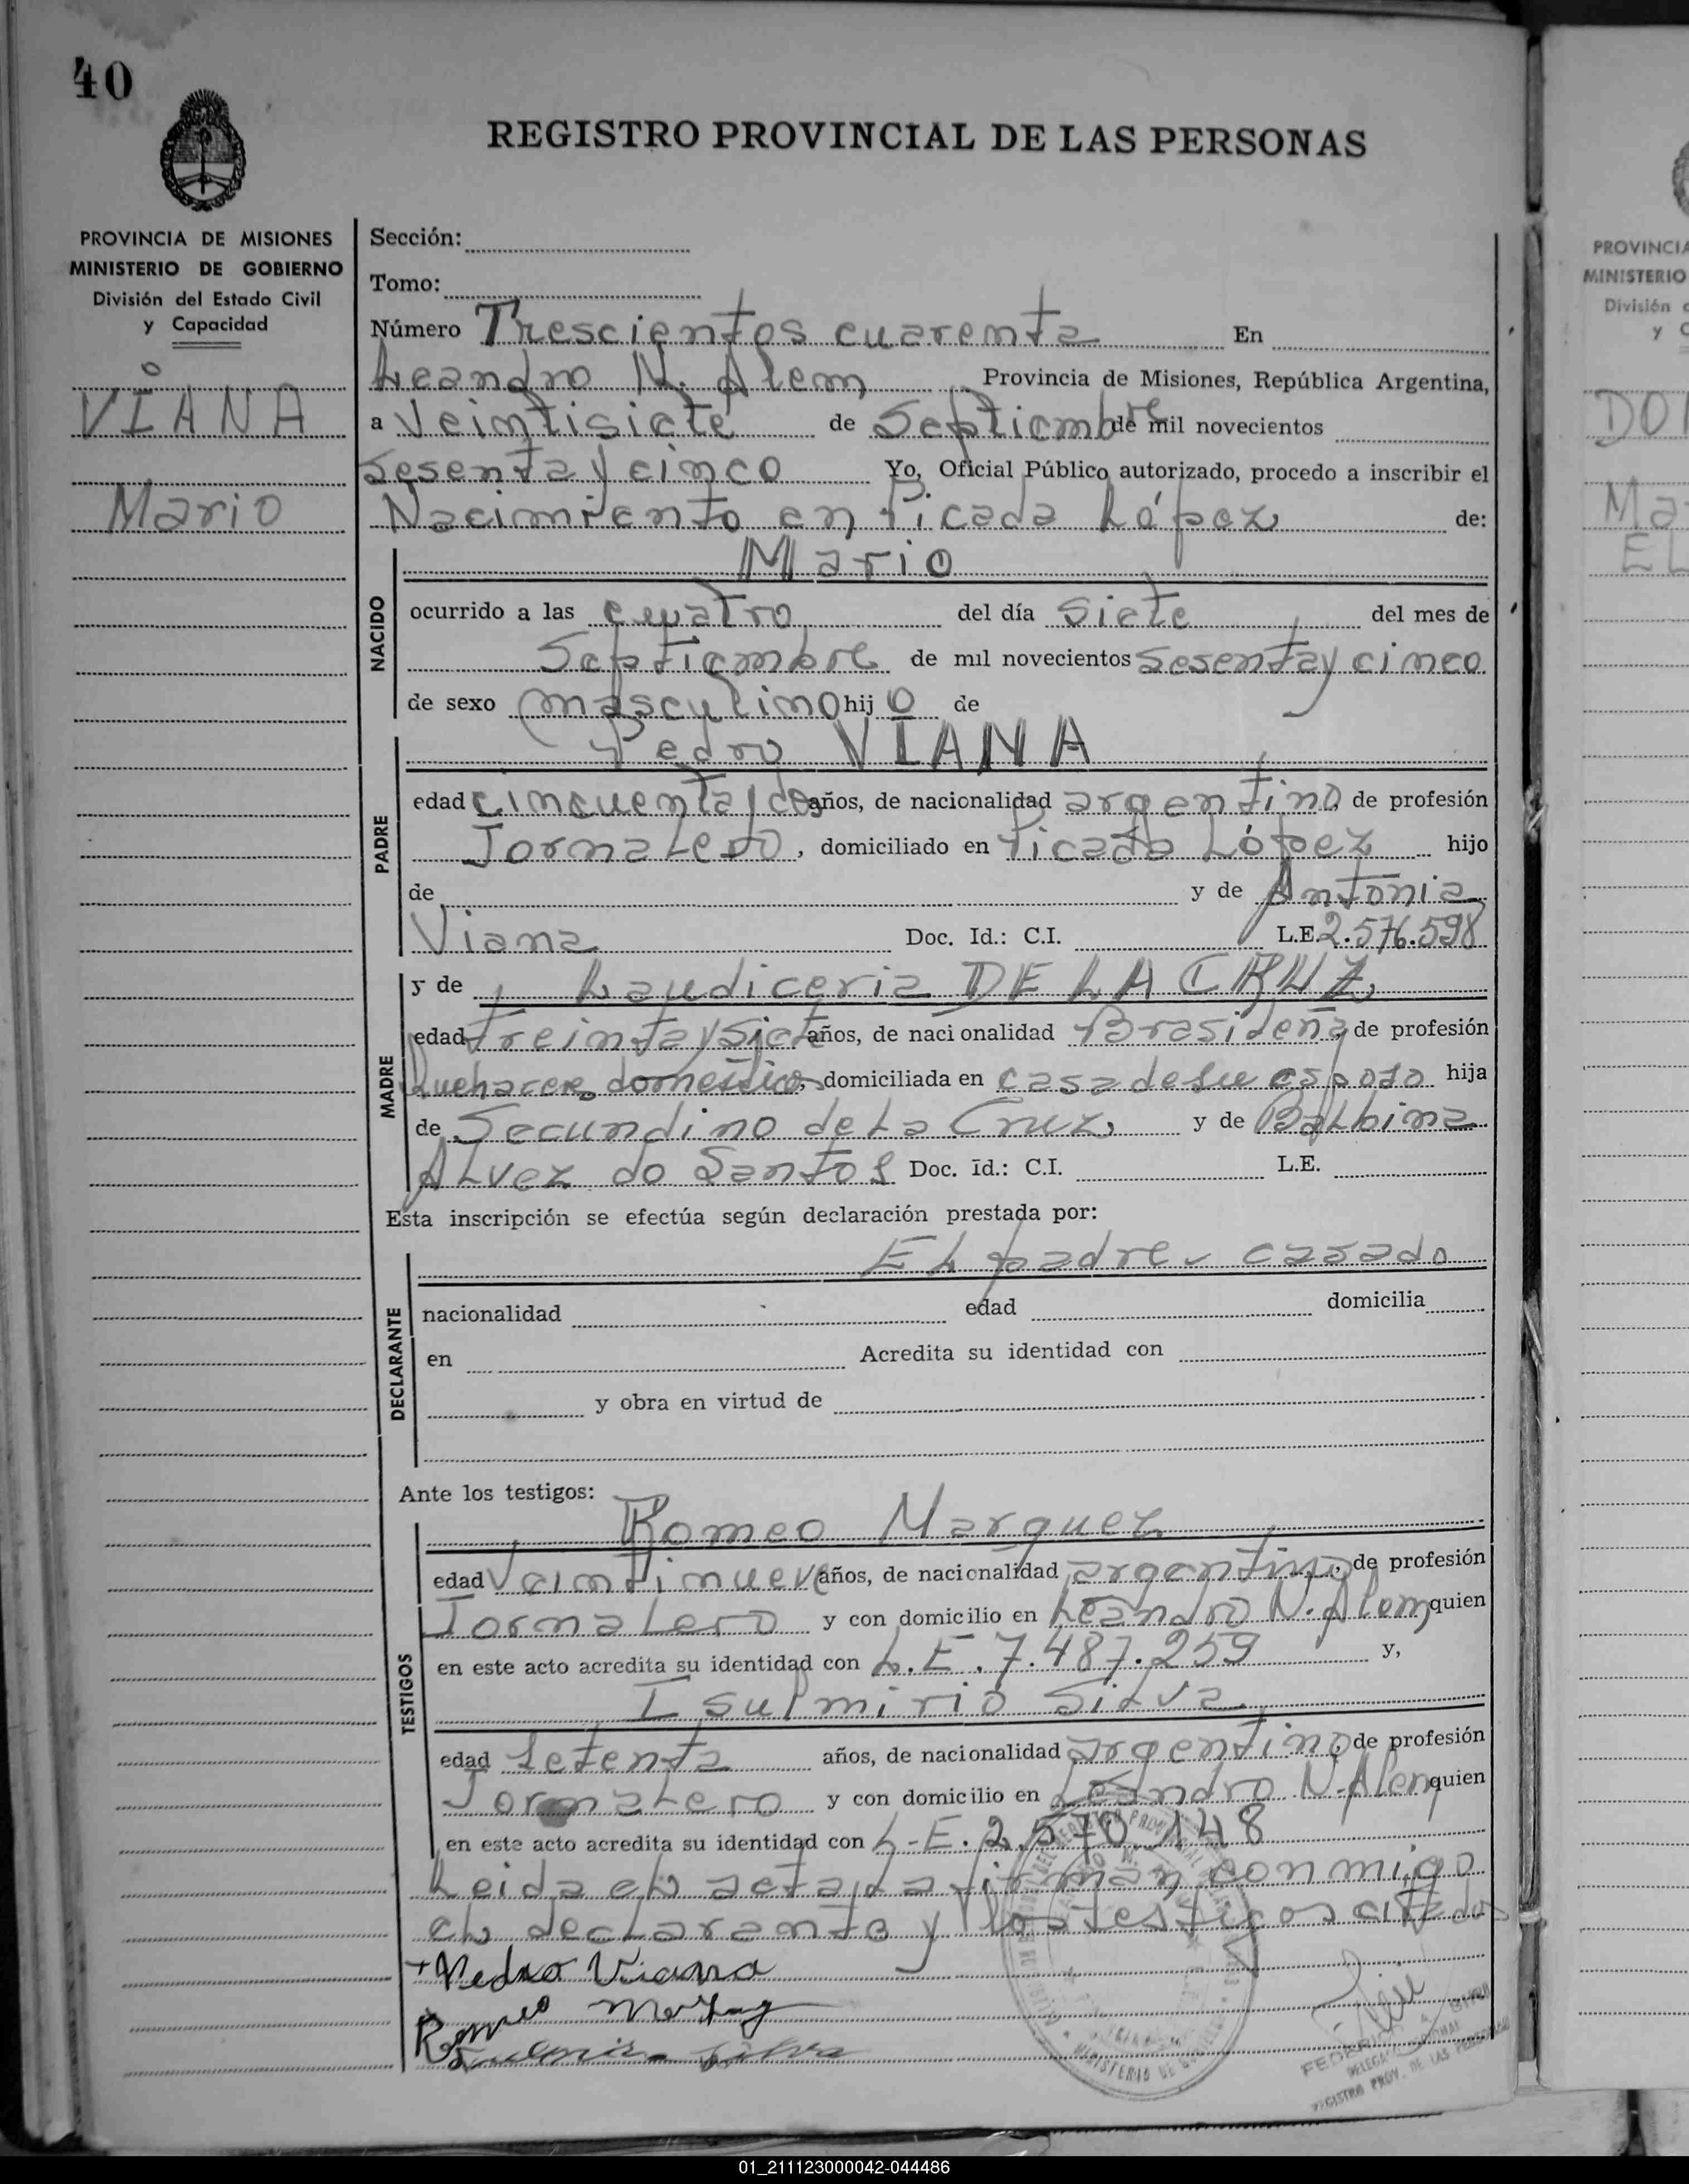 40
REGISTRO PROVINCIAL DE LAS PERSONAS
PROVINCIA DE MISIONES
MINISTERIO DE GOBIERNO
División del Estado Civil
y Capacidad
VIANA
Mario
Sección:
Tomo:
Número Trescientos cuarenta En
Leandro N. Alem Provincia de Misiones, República Argentina,
a Veintisiete de Septiembre de mil novecientos
sesenta y cinco Yo, Oficial Público autorizado, procedo a inscribir el
Nacimiento en Picada López de:
Mario
NACIDO
ocurrido a las cuatro del día siete del mes de
Septiembre de mil novecientos sesenta y cinco
de sexo masculino hij o de
Pedro VIANA
PADRE
edad cincuenta y dos años, de nacionalidad argentino, de profesión
Jornalero, domiciliado en Picada López hijo
de y de Antonia
Viana Doc. Id.: C.I. L.E. 2.576.598
y de Laudiceria DE LA CRUZ
MADRE
edad treinta y siete años, de nacionalidad Brasileña, de profesión
Quehaceres domésticos, domiciliada en casa de su esposo hija
de Secundino de La Cruz y de Balbina
Alvez do Santos Doc. Id.: C.I. L.E.
Esta inscripción se efectúa según declaración prestada por:
El padre casado
DECLARANTE
nacionalidad edad domicilia
en Acredita su identidad con
y obra en virtud de
Ante los testigos:
Romeo Marquez
TESTIGOS
edad Veintinueve años, de nacionalidad argentino, de profesión
Jornalero y con domicilio en Leandro N. Alem quien
en este acto acredita su identidad con L.E. 7.487.259 y,
Isulmirio Silva
edad Setenta años, de nacionalidad argentino, de profesión
Jornalero y con domicilio en Leandro N. Alem quien
en este acto acredita su identidad con L.E. 2.570.148
Leida el acta, la firman conmigo
el declarante y los testigos citados
Pedro Viana
Romeo
Silva
MINISTERIO DE
REGISTRO PROV. DE LAS PERSONAS
PROVINCIA
MINISTERIO
División
y
01_211123000042-044486